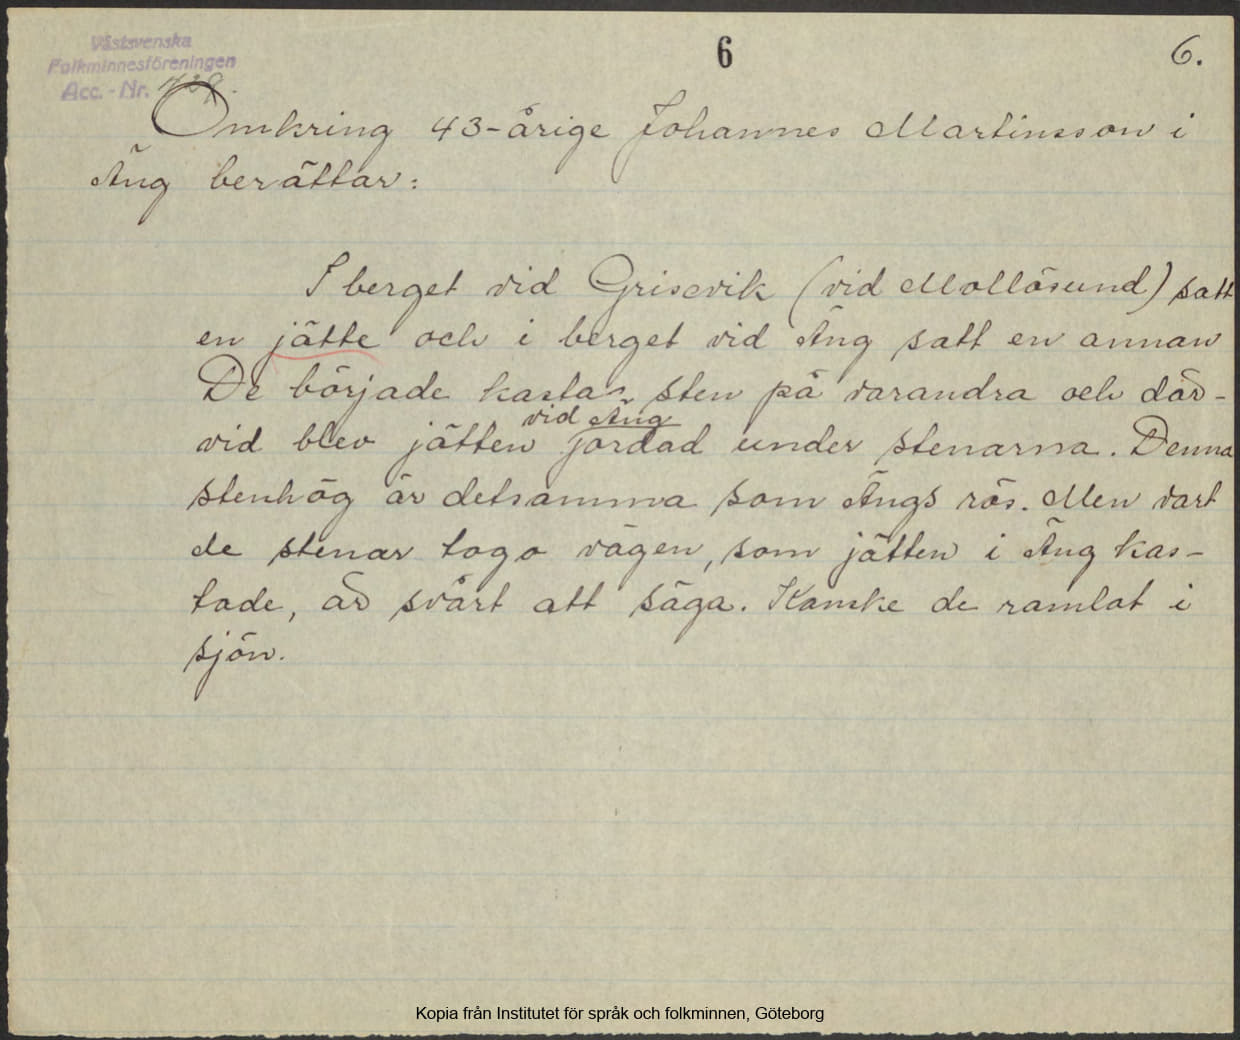 Västsvenska
Folkminnesföreningen
Acc. - Nr.
6
6.
Omkring 43-årige Johannes Martinsson i
Äng berättar:
I berget vid Grisevik (vid Mollösund) satt
en jätte och i berget vid Äng satt en annan
De började kasta sten på varandra och där-
vid Äng
vid blev jätten jordad under stenarna. Denna
stenhög är detsamma som Ängs rös. Men vart
de stenar togo vägen, som jätten i Äng kas-
tade, är svårt att säga. Kanske de ramlat i
sjön.
Kopia från Institutet för språk och folkminnen, Göteborg